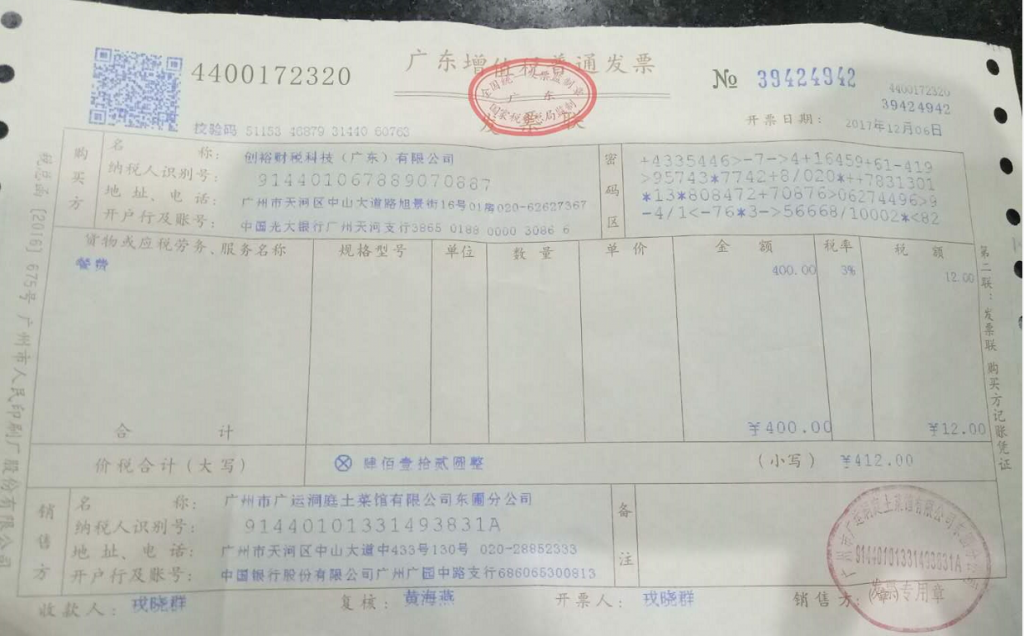 4400172320
广东增值税普通发票
发票联
№ 39424942
4400172320
39424942
校验码 51153 46879 31440 60763
开票日期: 2017年12月06日
全国统一发票监制章
广东
国家税务总局监制
税总函〔2016〕675号 广州市人民印刷厂股份有限公司
购买方
名称: 创裕财税科技(广东)有限公司
纳税人识别号: 914401067889070887
地址、电话: 广州市天河区中山大道路旭景街16号01铺020-62627367
开户行及账号: 中国光大银行广州天河支行3865 0188 0000 3086 6
密码区
+4335446>-7->4+16459+61-419
>95743*7742+8/020*++7831301
*13*808472+70876>06274496>9
-4/1<-76*3->56668/10002*<82
货物或应税劳务、服务名称 规格型号 单位 数量 单价 金额 税率 税额
餐费 400.00 3% 12.00
合计 ¥400.00 ¥12.00
价税合计(大写) ⊗肆佰壹拾贰圆整 (小写) ¥412.00
销售方
名称: 广州市广运洞庭土菜馆有限公司东圃分公司
纳税人识别号: 91440101331493831A
地址、电话: 广州市天河区中山大道中433号130号 020-28852333
开户行及账号: 中国银行股份有限公司广州广园中路支行686065300813
备注
收款人: 戎晓群 复核: 黄海燕 开票人: 戎晓群 销售方:(章)
第二联:发票联 购买方记账凭证
广州市广运洞庭土菜馆有限公司东圃分公司
91440101331493831A
发票专用章